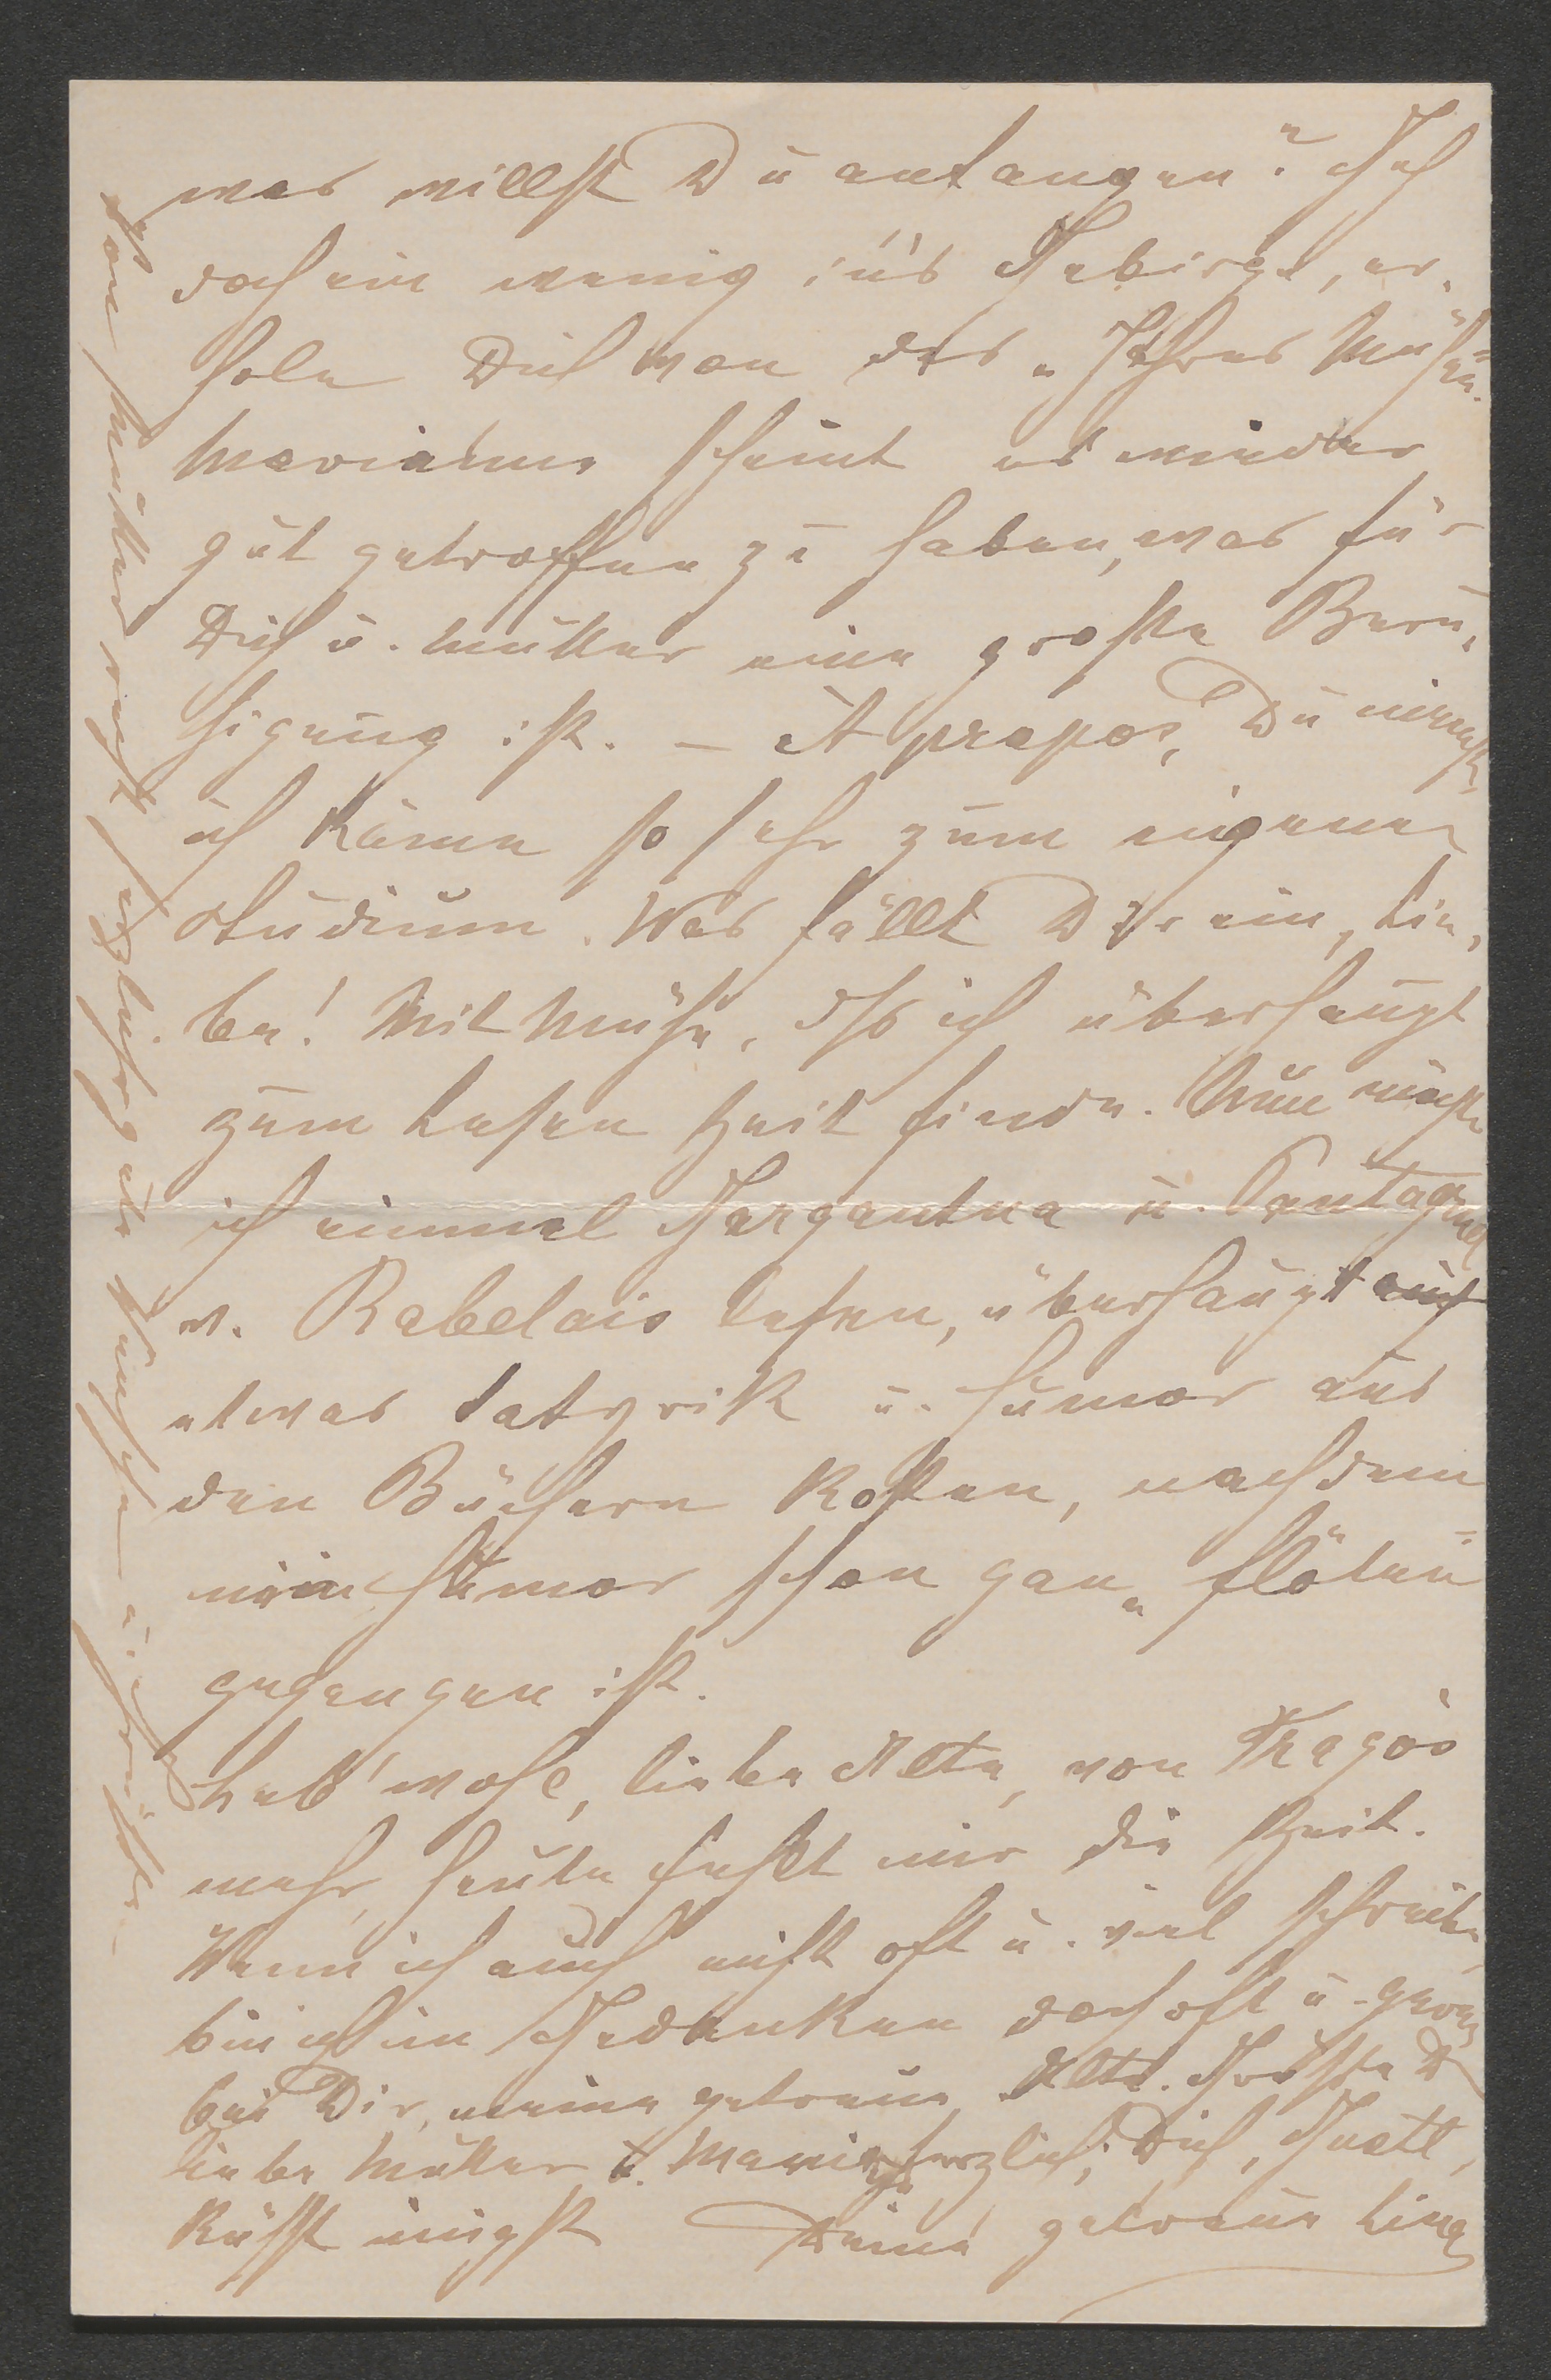 was willst Du anfangen? Geh
doch ein wenig in's Gebirge, er-
hole Dich von des „Jahres Mühen“.
Marianne scheint es wieder
gut getroffen zu haben, was für
Dich u. Mutter eine große Beru-
higung ist. – A propos, Du meinst,
ich käme so sehr zum eigenen
Studium. Was fällt Dir ein, Lie-
be! Mit Mühe, dß ich überhaupt
zum Lesen Zeit finde. Nun möchte
ich einmal Gargantua u. Pantagruel
v. Rabelais lesen, überhaupt auch
etwas Satyrik u. Humor aus
den Büchern kosten, nachdem
mein Humor schon ganz „flöten“
gegangen ist.
Leb' wohl, liebe Alte, von Tragöß
mehr, heute fehlt mir die Zeit.
Wenn ich auch nicht oft u. viel schreibe,
bin ich in Gedanken doch oft u. gern
bei Dir, meine getreue Alte. Grüße D
liebe Mutter u. Marie herzlich; Dich, Gustl,
küsst innigst Deine getreue Lina
Von Mutter recht herzliche Grüße